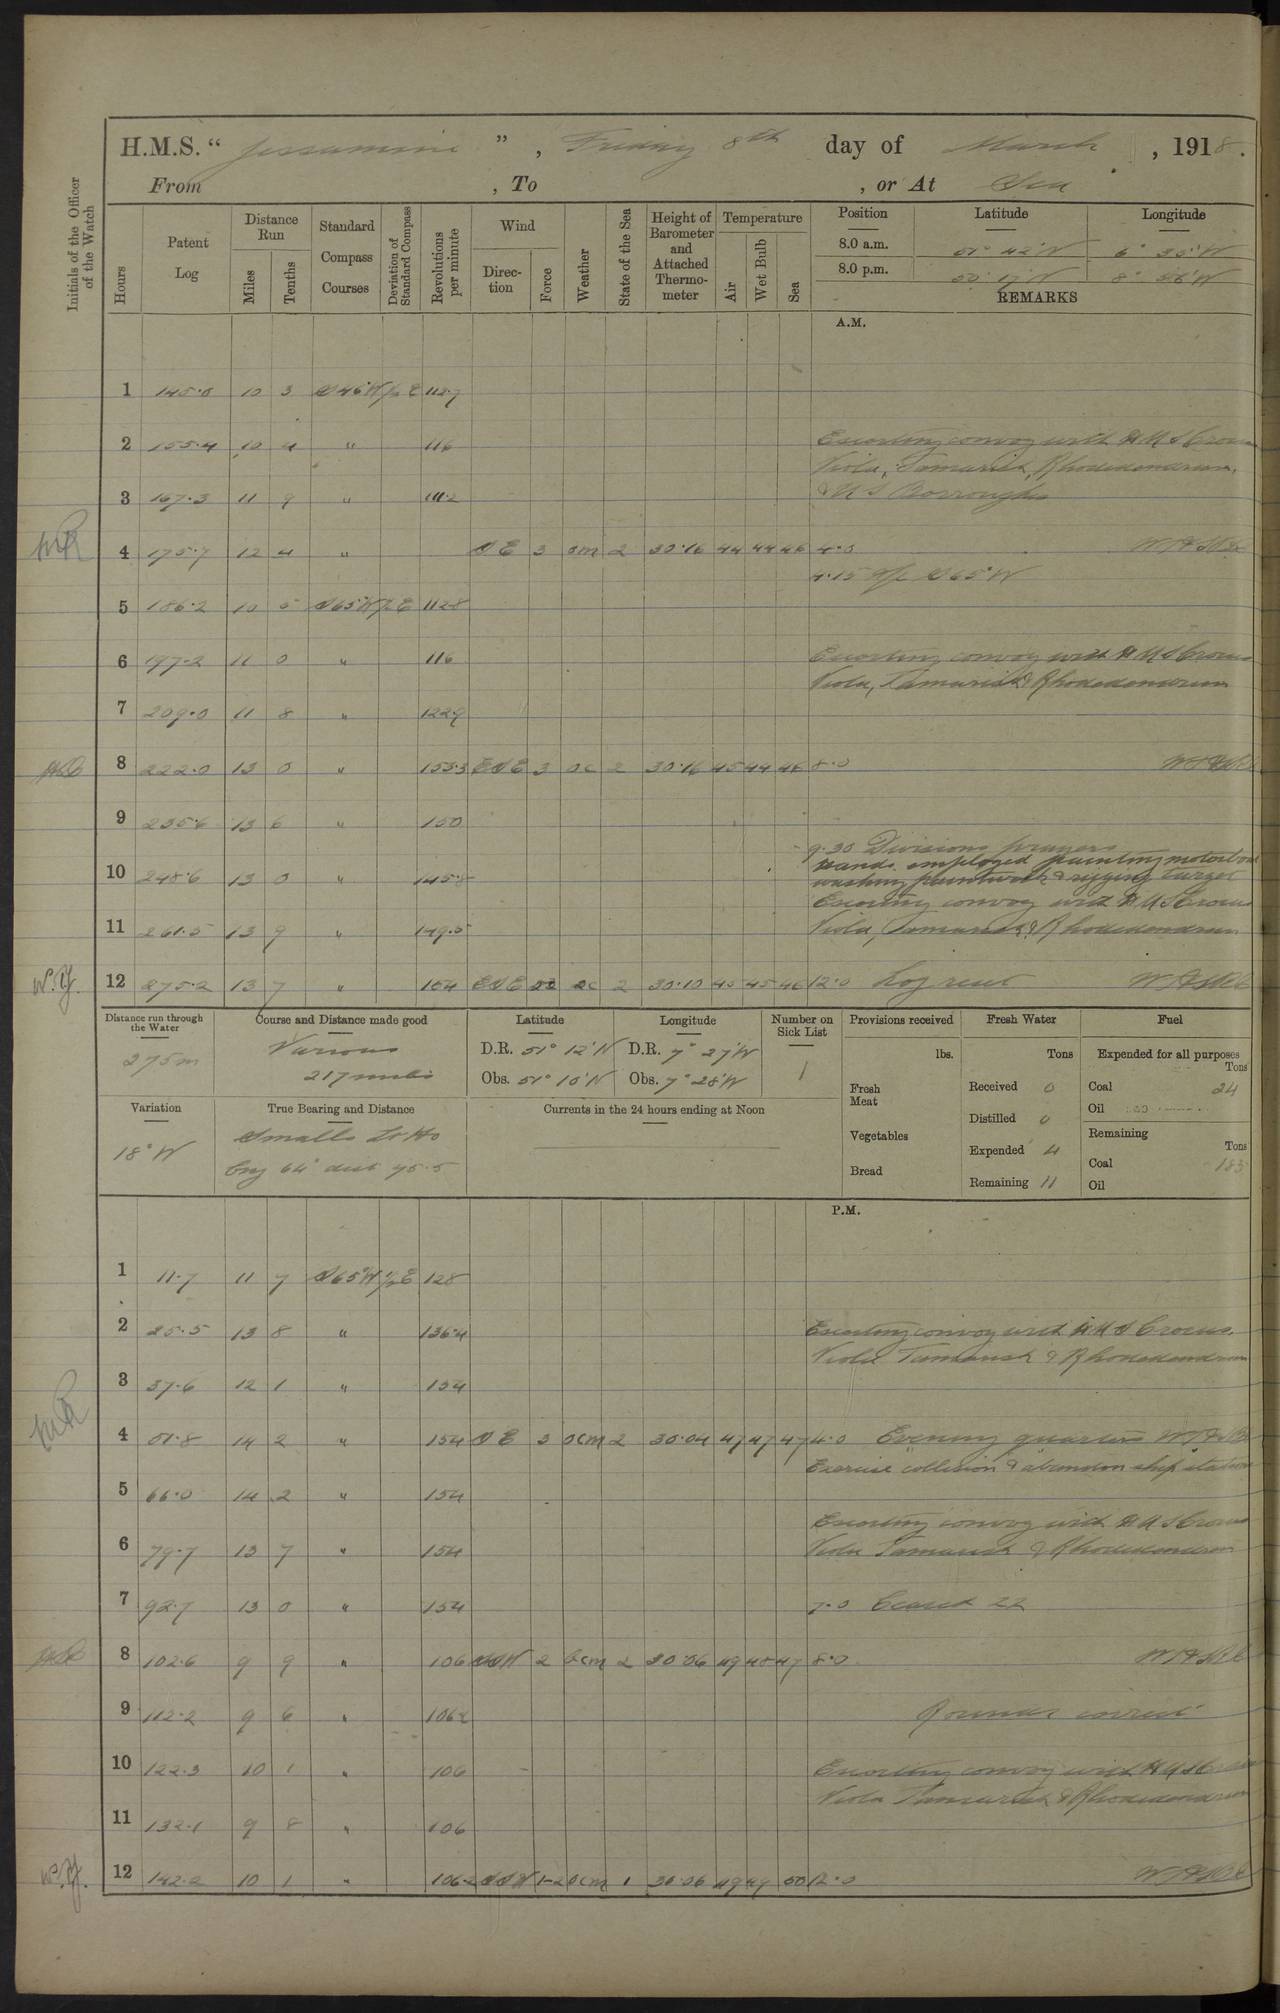 H.M.S. “ Jessamine ” , Friday 8th day of March , 1918.
From , To , or At Sea
Initials of the Officer of the Watch
Hours
Patent Log
Distance Run
Miles
Tenths
Standard Compass Courses
Deviation of Standard Compass
Revolutions per minute
Wind
Direction
Force
Weather
State of the Sea
Height of Barometer and Attached Thermometer
Temperature
Air
Wet Bulb
Sea
Position Latitude Longitude
8.0 a.m. 51° 42'N 6° 35'W
8.0 p.m. 50° 17'N 8° 56'W
REMARKS
A.M.
1 145.0 10 3 S46°W ½E 112.7
2 155.4 10 4 " 116 Escorting convoy with HMS Crocus
Viola, Tamarisk, Rhododendron,
3 167.3 11 9 " 111.2 & US Burroughs
4 175.7 12 4 " SE 3 om 2 30.16 44 44 46 4.0
4.15 A/c S65°W
5 186.2 10 5 S65°W ½E 112.8
6 197.2 11 0 " 116 Escorting convoy with HMS Crocus
Viola, Tamarisk & Rhododendron
7 209.0 11 8 " 122.9
8 222.0 13 0 " 153.3 ESE 3 oc 2 30.16 45 44 46 8.0
9 235.6 13 6 " 150
9.30 Divisions prayers
Hands employed painting motorboat
10 248.6 13 0 " 145.8 washing paintwork & rigging target
Escorting convoy with HMS Crocus
11 261.5 13 9 " 149.5 Viola, Tamarisk & Rhododendron
12 275.2 13 7 " 154 ESE 2 oc 2 30.10 45 45 46 12.0 Log reset
Distance run through the Water
275m
Course and Distance made good
Various
217 miles
Latitude
D.R. 51° 12'N
Obs. 51° 10'N
Longitude
D.R. 7° 27'W
Obs. 7° 28'W
Number on Sick List
1
Provisions received
lbs.
Fresh Meat
Vegetables
Bread
Fresh Water
Tons
Received 0
Distilled 0
Expended 4
Remaining 11
Fuel
Expended for all purposes
Tons
Coal 24
Oil
Remaining
Tons
Coal 183
Oil
Variation
18°W
True Bearing and Distance
Smalls Lt Ho
brg 64° dist 75.5
Currents in the 24 hours ending at Noon
P.M.
1 11.7 11 7 S65°W ½E 128
2 25.5 13 8 " 136.4 Escorting convoy with HMS Crocus,
Viola Tamarisk & Rhododendron
3 37.6 12 1 " 154
4 51.8 14 2 " 154 SE 3 ocm 2 30.04 47 47 47 4.0 Evening quarters
Exercise "collision" & "abandon ship" stations
5 66.0 14 2 " 154
Escorting convoy with HMS Crocus
6 79.7 13 7 " 154 Viola Tamarisk & Rhododendron
7 92.7 13 0 " 154 7.0
8 102.6 9 9 " 106 SSW 2 ocm 2 30.06 49 48 47 8.0
9 112.2 9 6 " 106.2 Rounds correct
10 122.3 10 1 " 106 Escorting convoy with HMS Crocus
Viola Tamarisk & Rhododendron
11 132.1 9 8 " 106
12 142.2 10 1 " 106.2 SSW 1-2 ocm 1 30.06 49 49 50 12.0